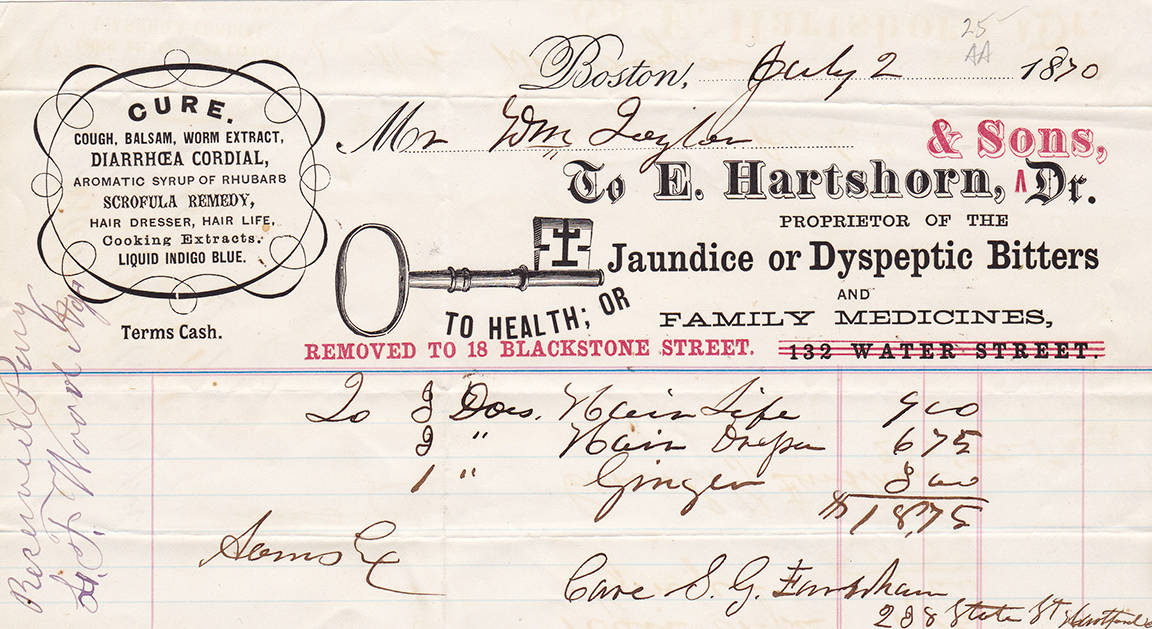 25
AA
Boston, July 2 1870
Mr Wm Taylor
& Sons,
To E. Hartshorn, Dr.
PROPRIETOR OF THE
Jaundice or Dyspeptic Bitters
AND
FAMILY MEDICINES,
TO HEALTH; OR
REMOVED TO 18 BLACKSTONE STREET. 132 WATER STREET.
CURE.
COUGH, BALSAM, WORM EXTRACT,
DIARRHŒA CORDIAL,
AROMATIC SYRUP OF RHUBARB
SCROFULA REMEDY,
HAIR DRESSER, HAIR LIFE,
Cooking Extracts.
LIQUID INDIGO BLUE.
Terms Cash.
To 3 Dos. Hair Life 9 00
3 " Hair Dresser 6 75
1 " Ginger 3 00
$18,75
Care S. G.
State St Hartford
Received Pay
Wood